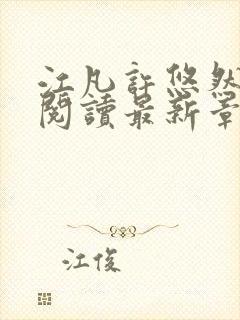 江凡許悠然
閱讀最新章
江俊